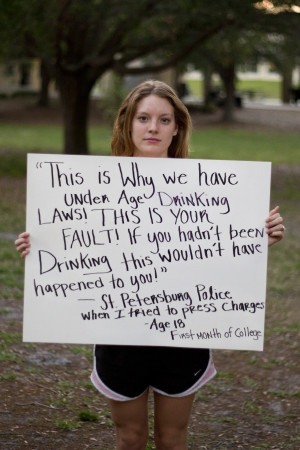 "This is Why we have
under Age Drinking
LAWS! THIS IS YOUR
FAULT! If you hadn't been
Drinking this wouldn't have
happened to you!"
— St. Petersburg Police
when I tried to press charges
-Age 18
First Month of College